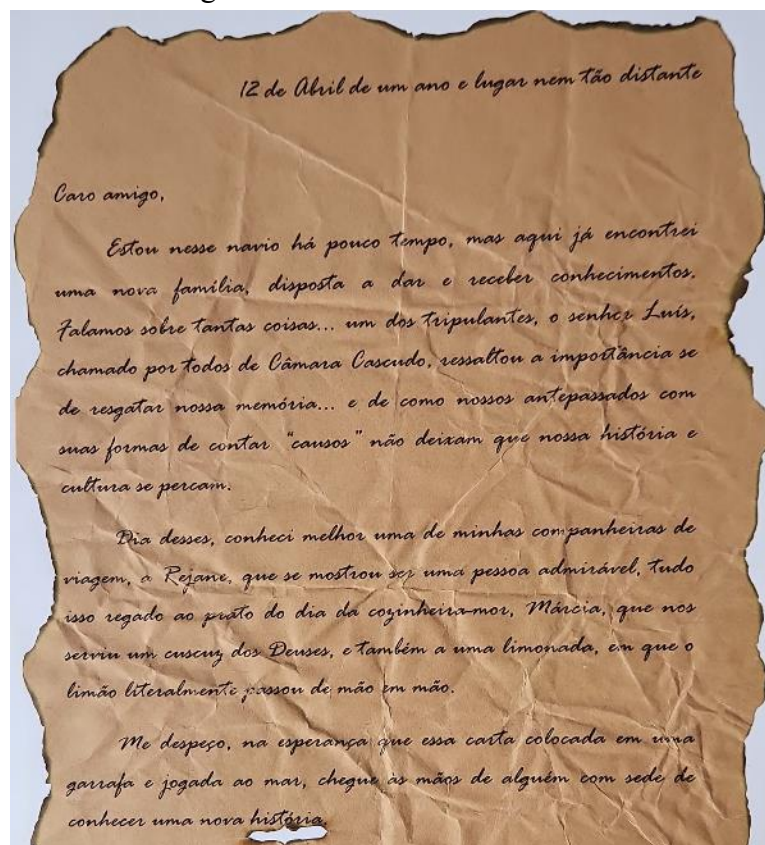 12 de Abril de um ano e lugar nem tão distante
Caro amigo,
Estou nesse navio há pouco tempo, mas aqui já encontrei
uma nova família, disposta a dar e receber conhecimentos.
Falamos sobre tantas coisas... um dos tripulantes, o senhor Luís,
chamado por todos de Câmara Cascudo, ressaltou a importância se
de resgatar nossa memória... e de como nossos antepassados com
suas formas de contar "causos" não deixam que nossa história e
cultura se percam.
Dia desses, conheci melhor uma de minhas companheiras de
viagem, a Rejane, que se mostrou ser uma pessoa admirável, tudo
isso regado ao prato do dia da cozinheira-mor, Márcia, que nos
serviu um cuscuz dos Deuses, e também a uma limonada, em que o
limão literalmente passou de mão em mão.
Me despeço, na esperança que essa carta colocada em uma
garrafa e jogada ao mar, chegue às mãos de alguém com sede de
conhecer uma nova história.